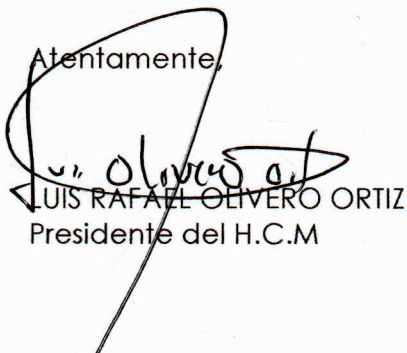 Atentamente,
Luis Olivero O.
LUIS RAFAEL OLIVERO ORTIZ
Presidente del H.C.M